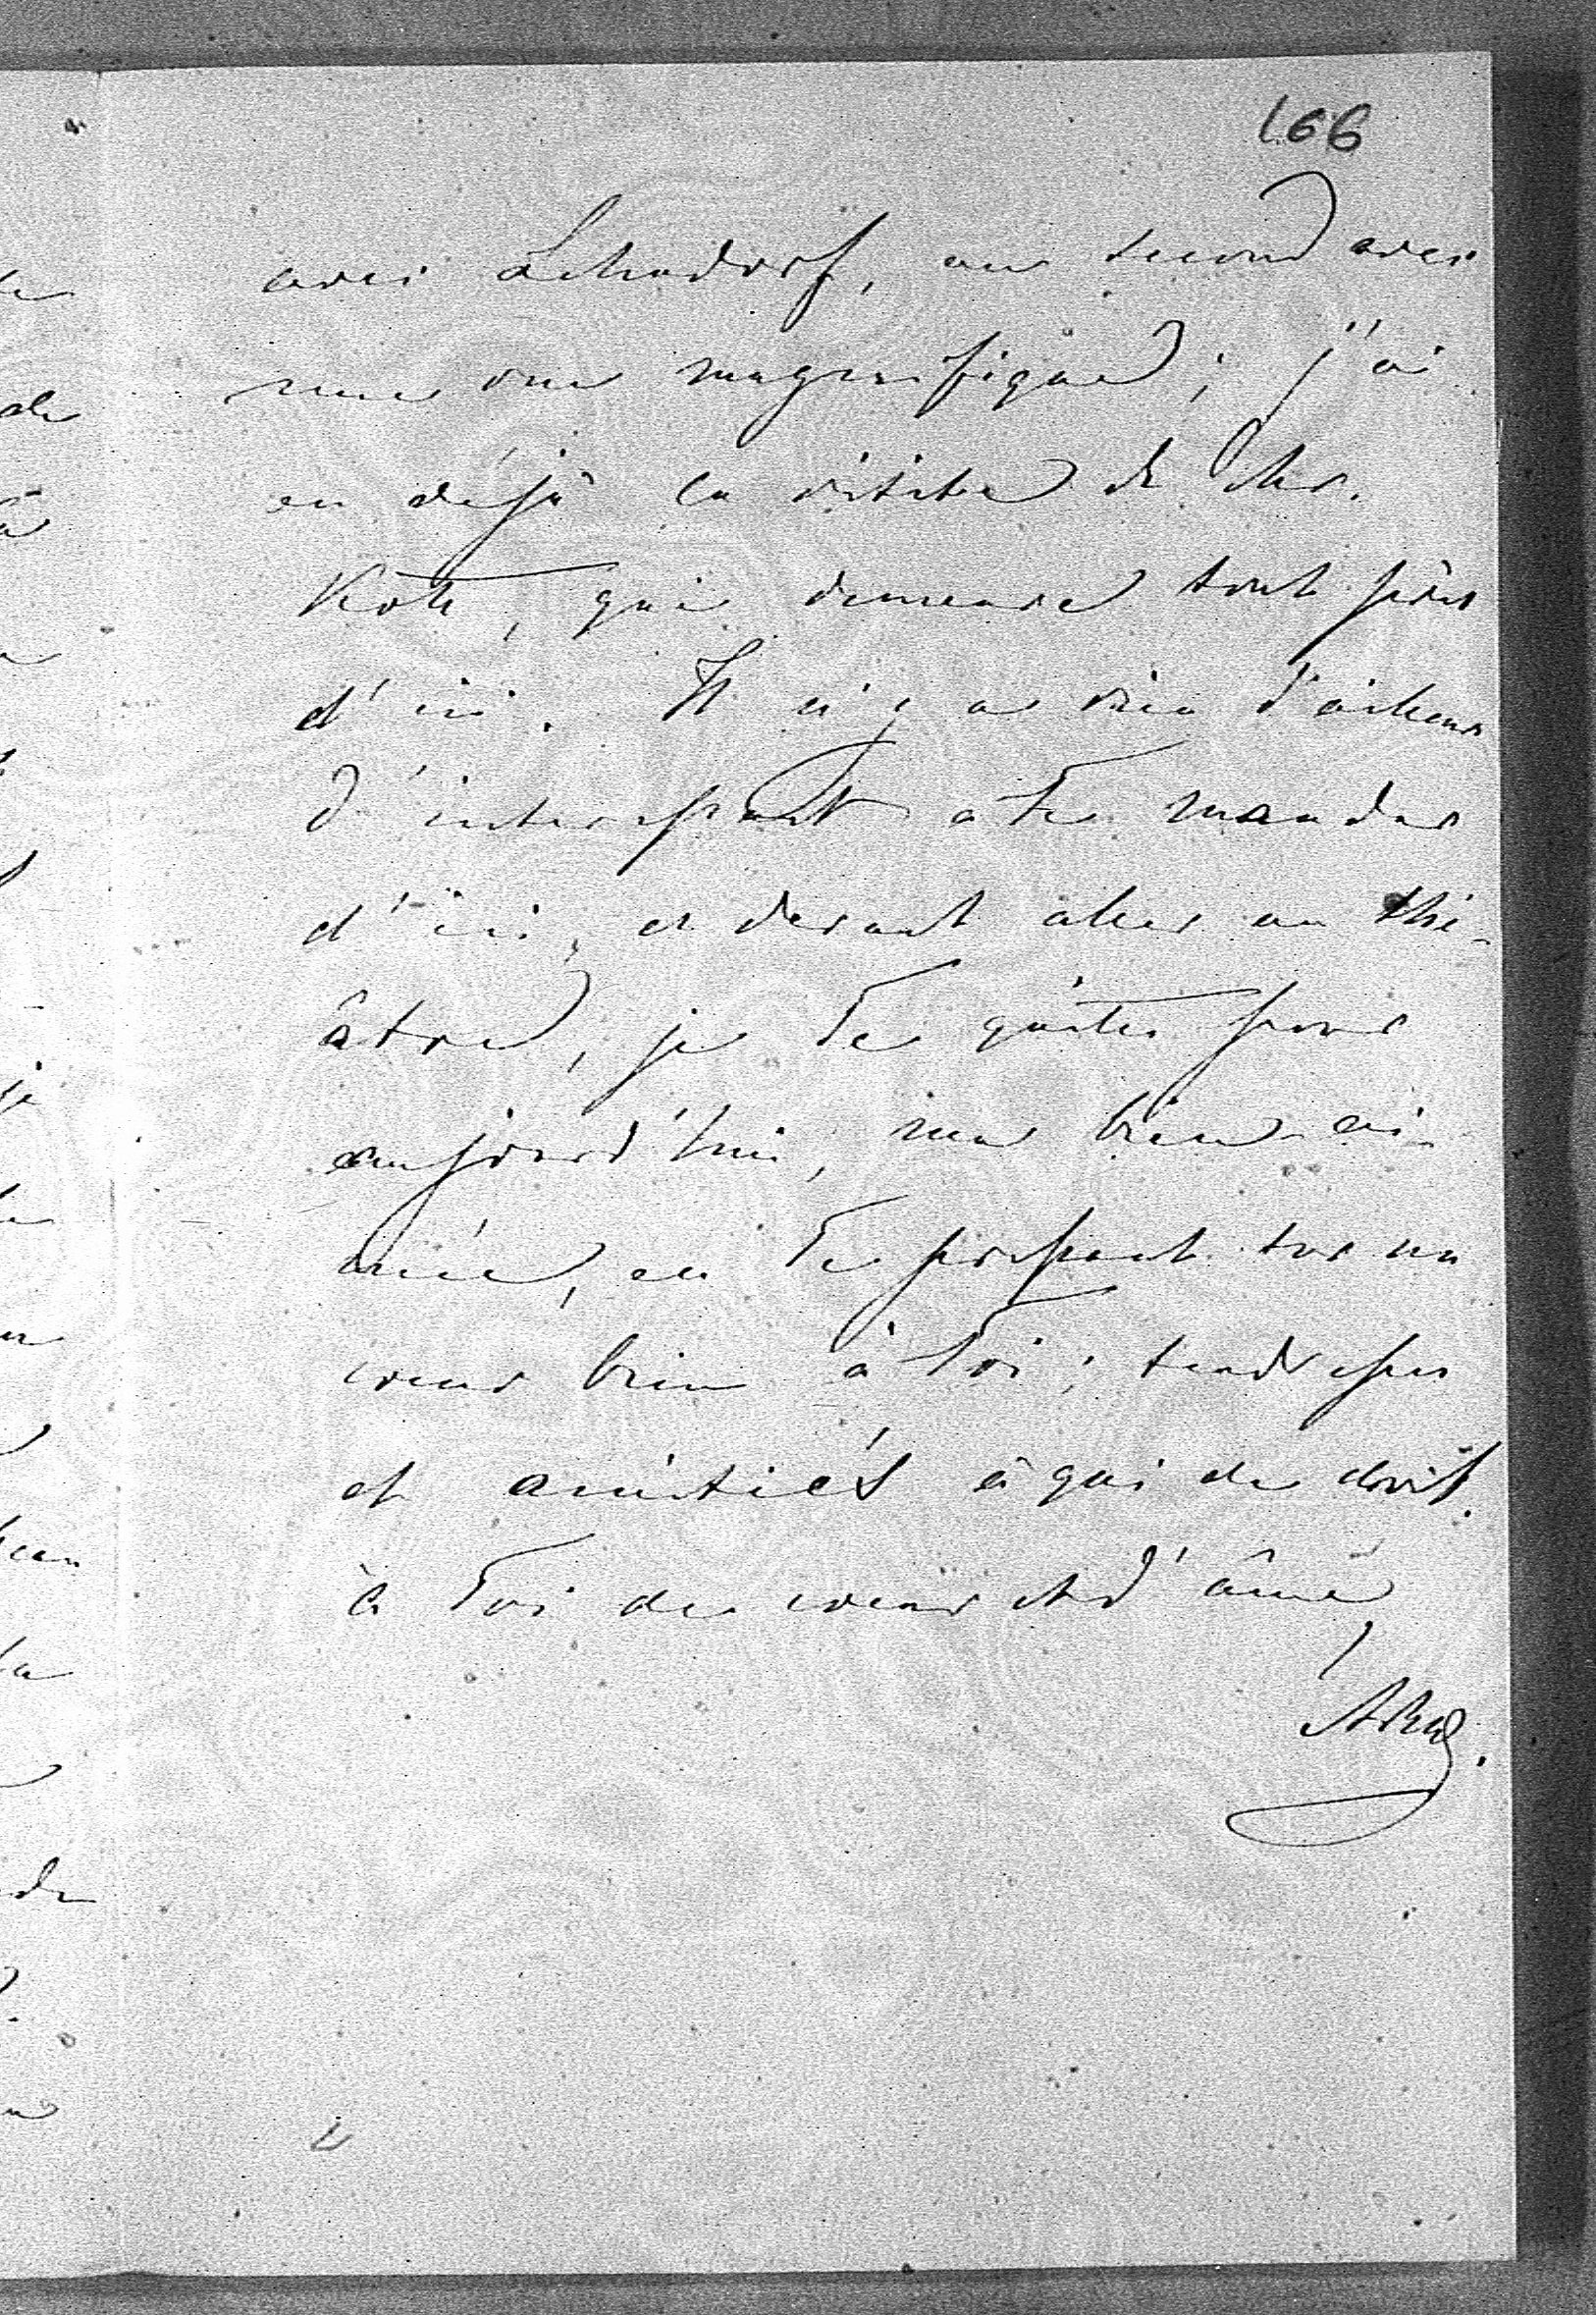 166
avec Lehndorf, au second avec
une vue magnifique; j'ai
eu déjà la visite de Mr.
Roth, qui demeure tout près
d'ici. Il n'y a rien d'ailleurs
d'interessant à Te mander
d'ici, et devant aller au thé-
âtre, je Te quitte pour
aujourd'hui, ma bien-ai-
mée, en Te pressant sur un
coeur bien à Toi; tendresses
et amitiés à qui de droit.
à Toi de coeur et d'âme